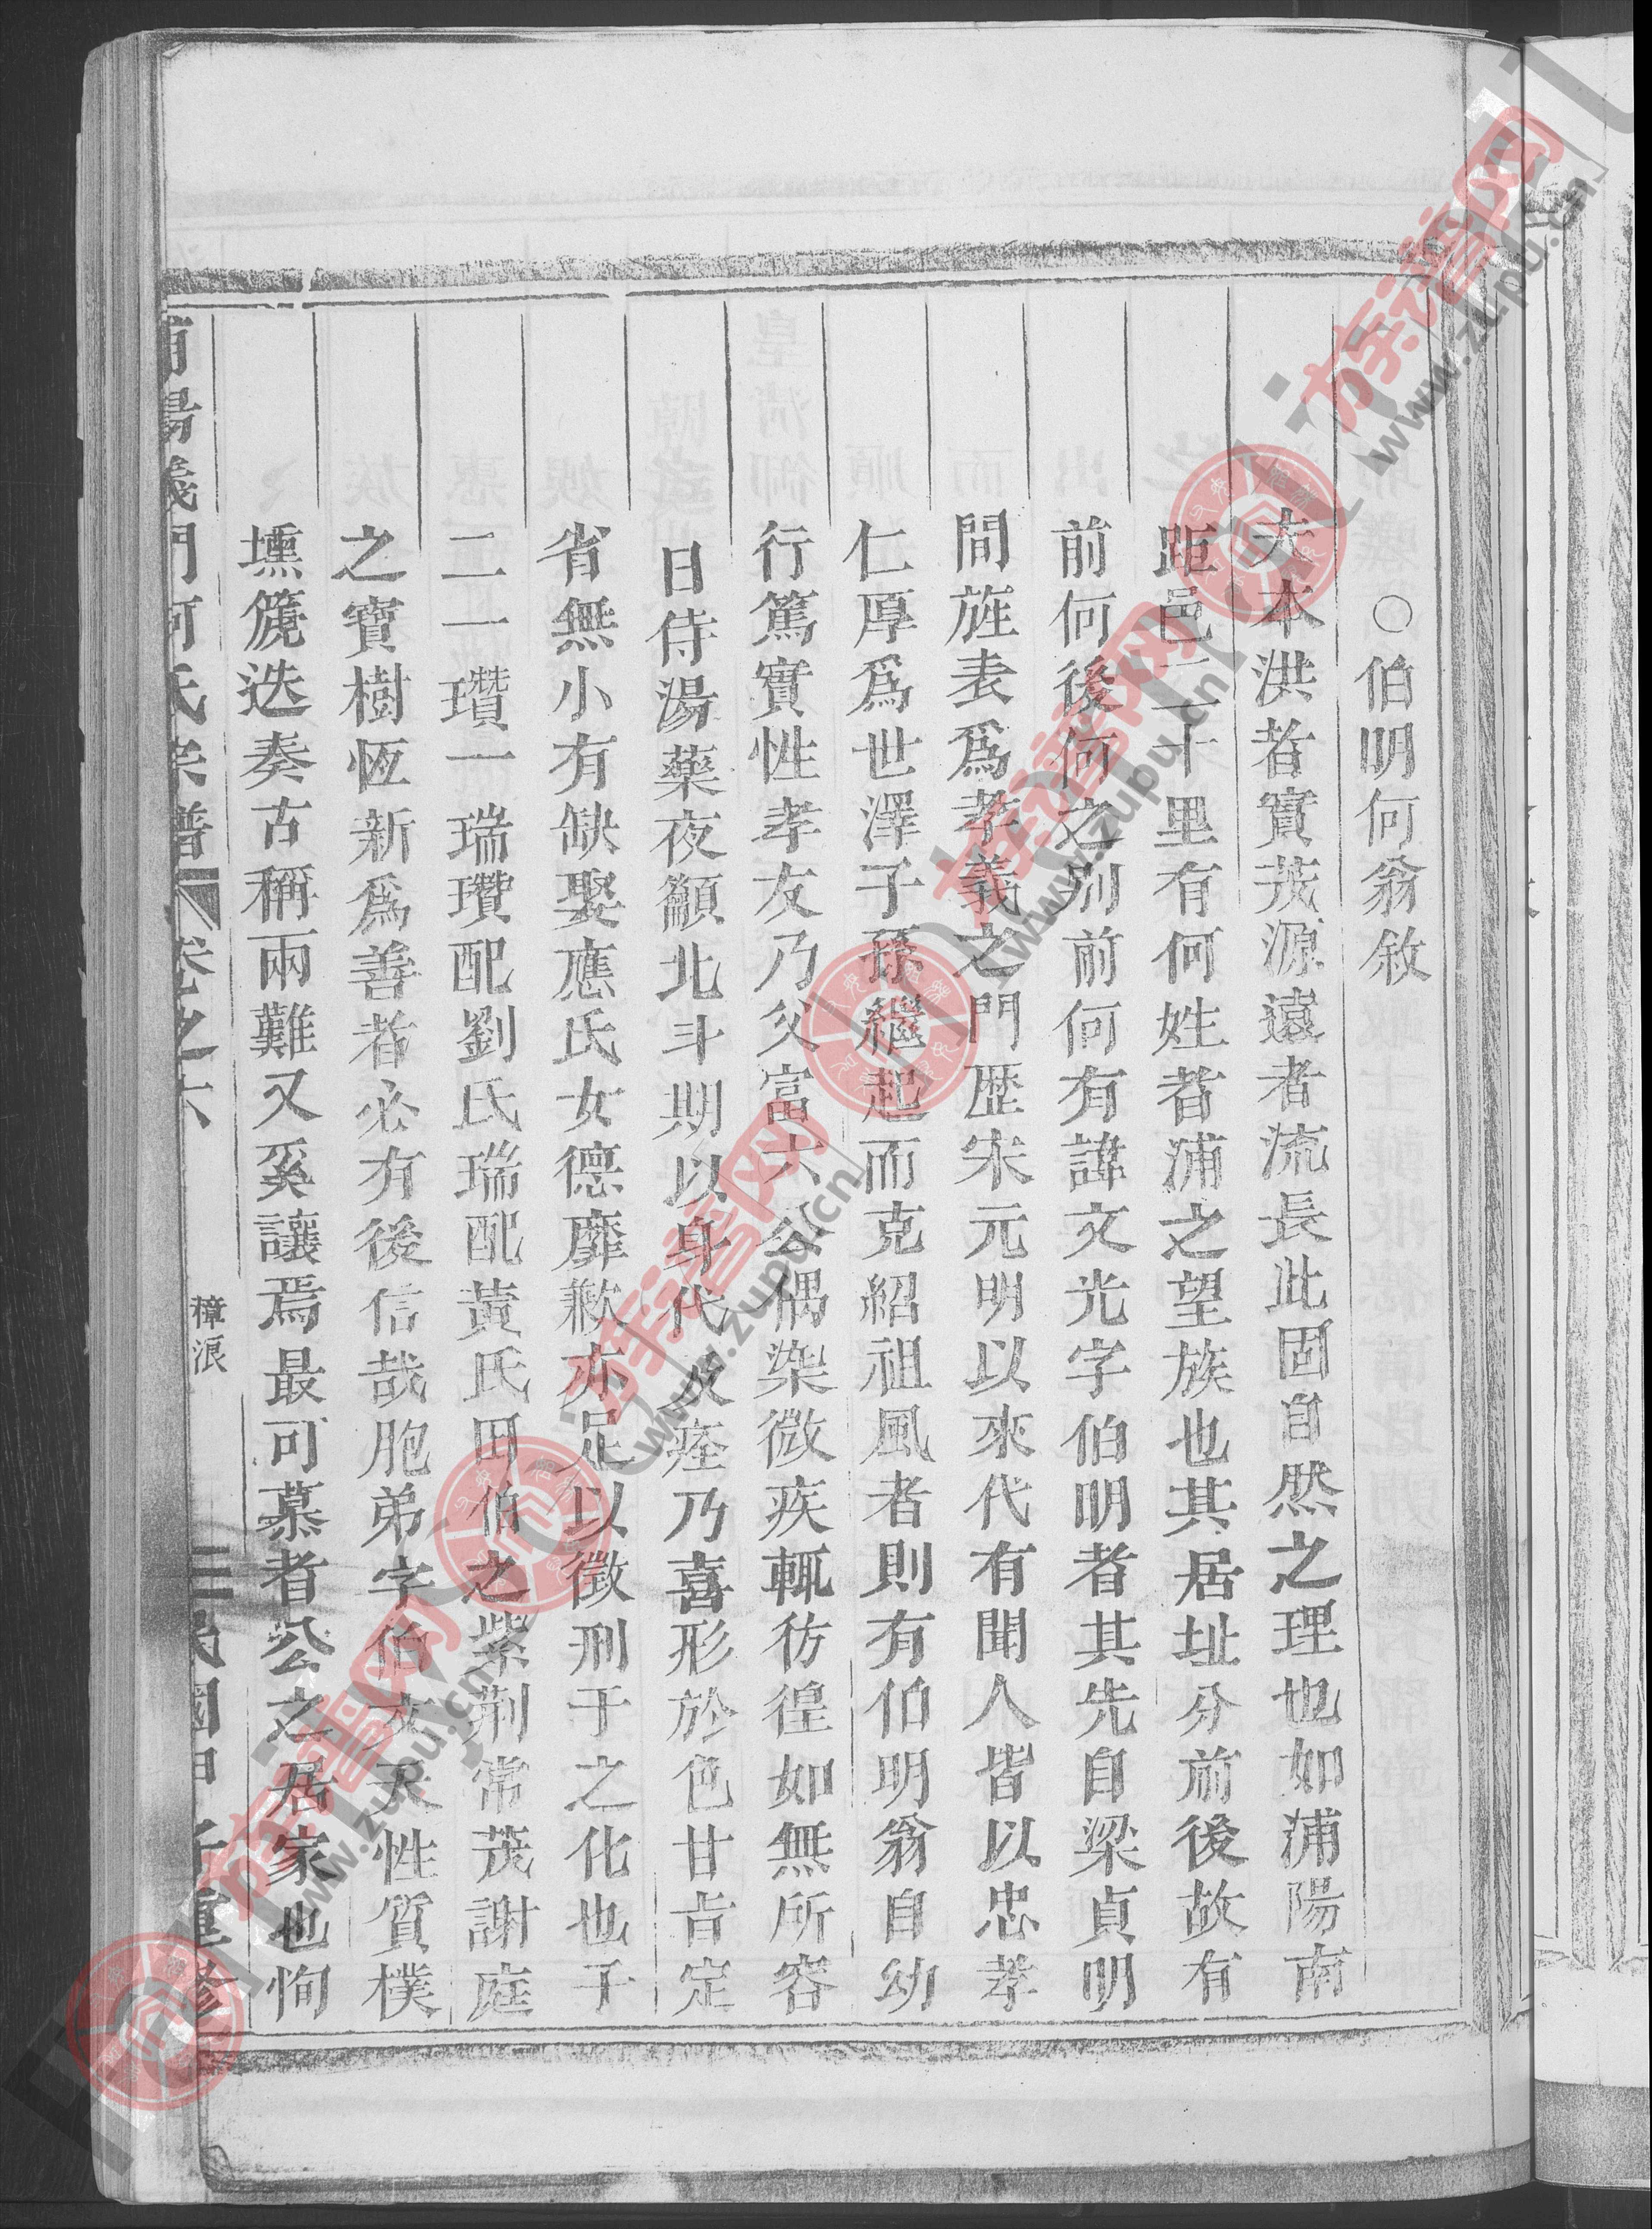 ○伯明何翁敘
夫木洪者實茂源遠者流長此固自然之理也如浦陽南
距邑二十里有何姓者浦之望族也其居址分前後故有
前何後何之別前何有諱文光字伯明者其先自梁貞明
間旌表爲孝義之門歷宋元明以來代有聞人皆以忠孝
仁厚爲世澤子孫繼起而克紹祖風者則有伯明翁自幼
行篤實性孝友乃父富六公偶染微疾輒彷徨如無所容
日侍湯藥夜籲北斗期以身代及痊乃喜形於色甘旨定
省無小有缺娶應氏女德靡歉亦足以徵刑于之化也子
二一瓚一瑞瓚配劉氏瑞配黃氏田伯之紫荆常茂謝庭
之寶樹恆新爲善者必有後信哉胞弟字伯文天性質樸
壎篪迭奏古稱兩難又奚讓焉最可慕者公之居家也恂
浦陽義門何氏宗譜 卷之六 樟浪 三 民國甲子重修